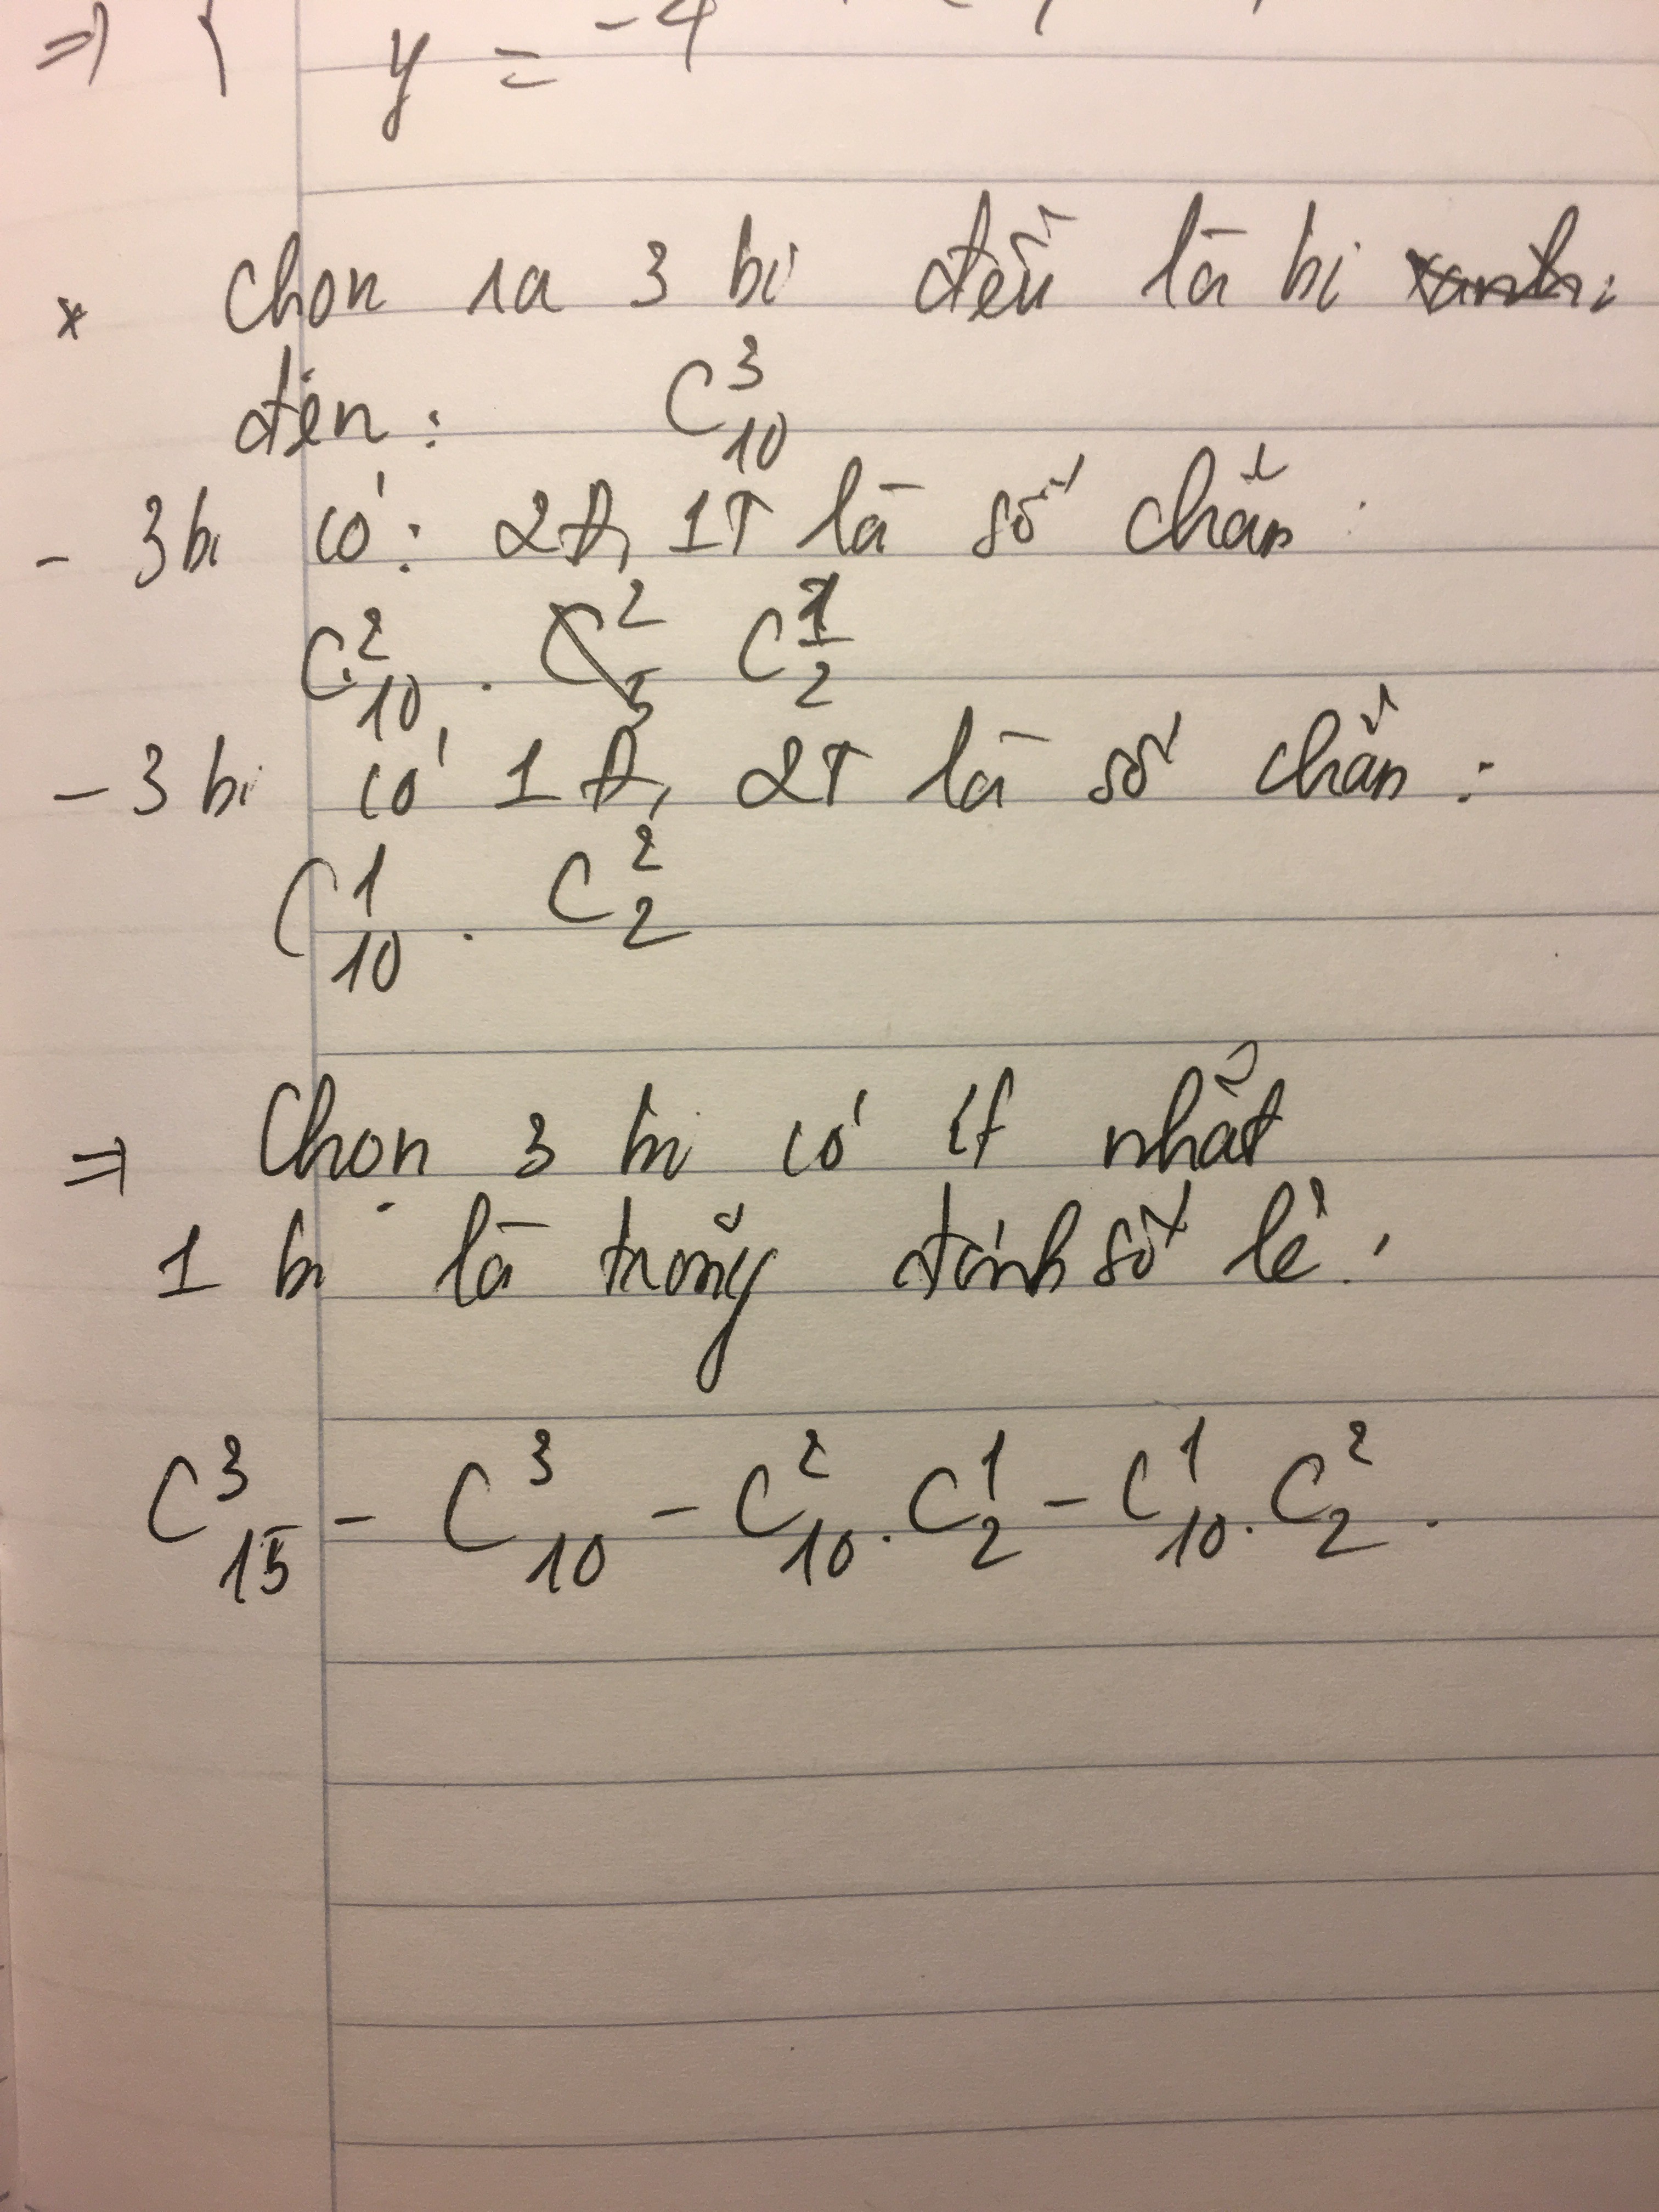 => { y = -4
* Chọn ra 3 bi đều là bi
đen: C³₁₀
- 3 bi có: 2Đ, 1T là số chẵn:
C²₁₀ . C¹₂
- 3 bi có 1Đ, 2T là số chẵn:
C¹₁₀ . C²₂
=> Chọn 3 bi có ít nhất
1 bi là trắng đánh số lẻ:
C³₁₅ - C³₁₀ - C²₁₀ . C¹₂ - C¹₁₀ . C²₂ .